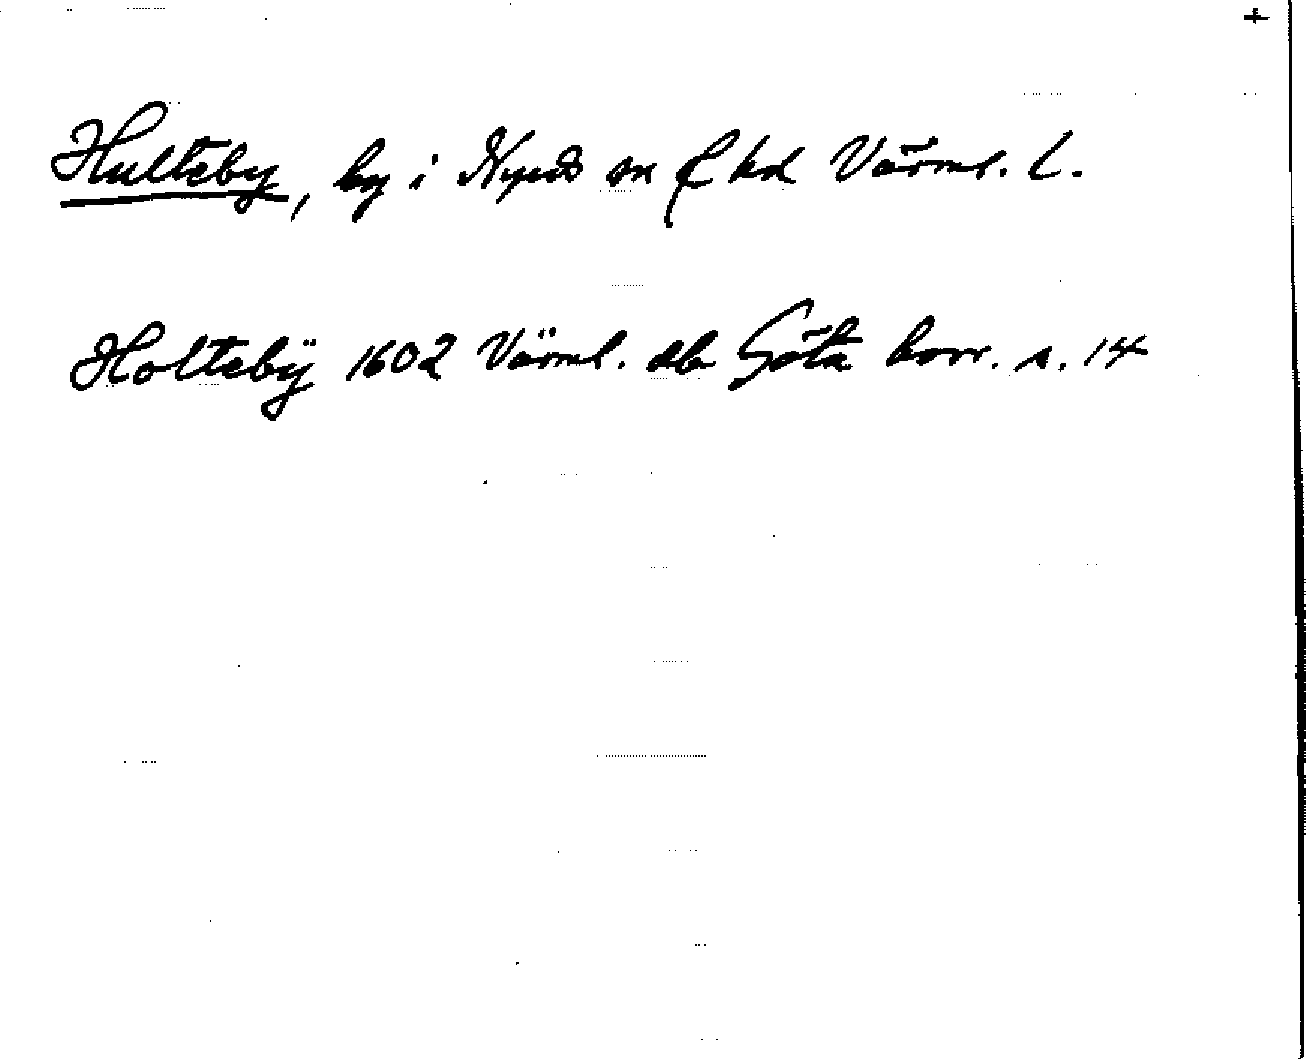 +
Hulteby, by i Nyeds sn f hd Värml. l.
Holtebÿ 1602 Värml. db Göta kovr. s. 14